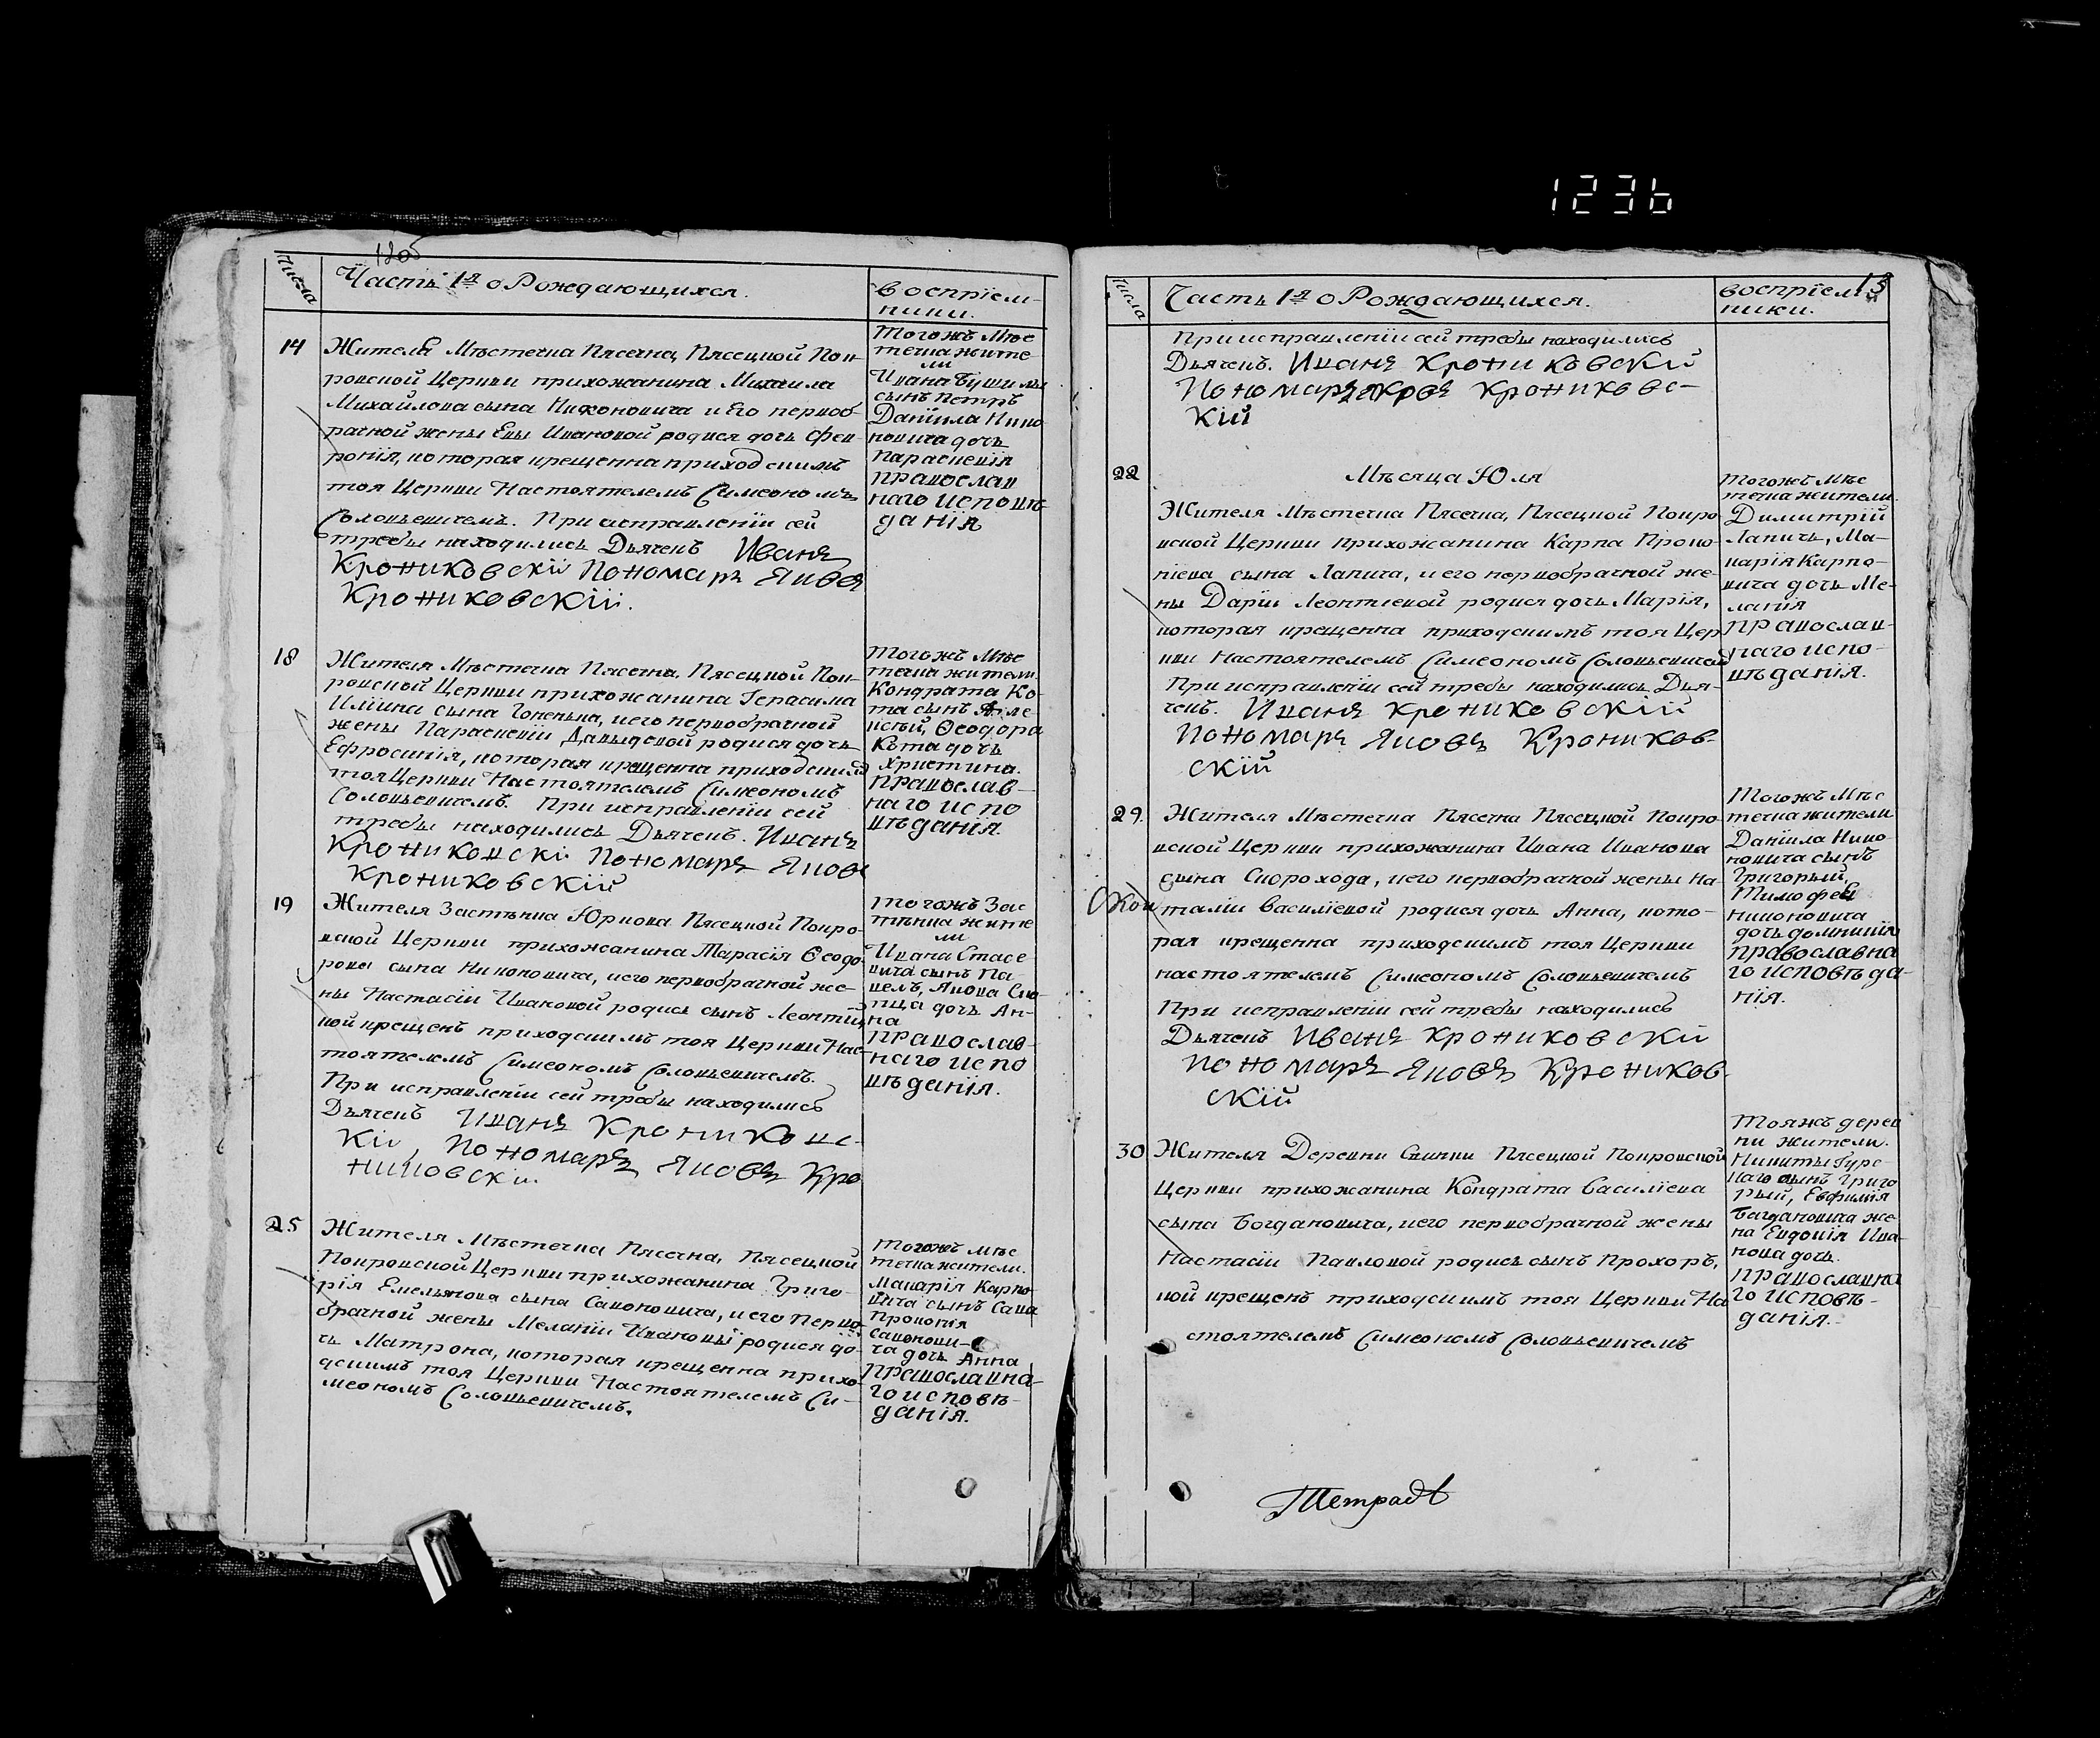 1236
12об
Числа
Часть 1я о Рождающихся.
воспріем-
ники.
14
Жителя Мѣстечка Пясечна, Пясецкой Пок-
ровской Церкви прихожанина Михаила
Михайлова сына Никоновича и Его первоб-
рачной жены Евы Ивановой родися дочь Фев-
ронія, которая крещенна приходскимъ
тоя Церкви Настоятелемъ Симеономъ
Соловьевичемъ. При исправленіи сей
требы находились Дьячекъ Иванъ
Крониковскій Пономарь Яковъ
Крониковскій.
Тогожъ Мѣс
течка жите-
ли
Ивана
сынъ Петръ
Даніила Нико
новича дочь
Параскевія
православ
наго исповѣ-
данія
18
Жителя Мѣстечка Пясечна, Пясецкой Пок-
ровской Церкви прихожанина Герасима
Иліина сына, иего первобрачной
жены Параскевіи Давыдовой родися дочь
Ефросинія, которая крещенна приходскимъ
тоя Церкви Настоятелемъ Симеономъ
Соловьевичемъ. При исправленіи сей
требы находились Дьячекъ. Иванъ
Крониковскі Пономарь Яковъ
Крониковскій
Тогожъ Мѣс
течка жители.
Кондрата Ко-
та сынъ Але-
ксѣй, Ѳеодора
Кота дочь
Христина.
православ-
наго испо
вѣданія.
19
Жителя Застѣнка Юркова Пясецкой Покро-
вской Церкви прихожанина Тарасія Ѳеодо-
рова сына Никоновича, иего первобрачной же-
ны Настасіи Ивановой родись сынъ Леонтій
кой крещенъ приходскимъ тоя Церкви Нас-
тоятелемъ Симеономъ Соловьевичемъ.
При исправленіи сей требы находились
Дьячекъ Иванъ Крониковс-
кій, Пономарь Яковъ Кро
никовскій.
Тогожъ Зас
тѣнка жите
ли
Ивана Стасе-
вича сынъ Па-
велъ, Якова
дочь Ан-
на
православ-
наго испо
вѣданія.
25
Жителя Мѣстечка Пясечна, Пясецкой
Покровской Церкви прихожанина Григо-
рія Емельянова сына Саконовича, иего перво-
брачной жены Меланіи Ивановы родися до-
чь Матрона, которая крещенна прихо-
дскимъ тоя Церкви Настоятелемъ Си-
меономъ Соловьевичемъ.
Тогожъ мѣс
течка жители.
Макарія Карпо-
вича сынъ Сава
Прокопія
Саконови-
ча дочь Анна
православна-
го исповѣ-
данія.
13
Числа
Часть 1я о Рождающихся.
воспріем-
ники.
При исправленіи сей требы находились
Дьячекъ. Иванъ Крониковскій
Пономарь Яковъ Крониковс-
кій
22
Мѣсяца Юля
Жителя Мѣстечка Пясечна, Пясецкой Покро-
вской Церкви прихожанина Карпа Проко-
піева сына Лапича, иего первобрачной же-
ны Даріи Леонтіевой родися дочь Марія,
которая крещенна приходскимъ тоя Цер
кви Настоятелемъ Симеономъ Соловьевичем
При исправленіи сей требы находились Дья-
чекъ. Иванъ Крониковскій
Пономарь Яковъ Кроников-
скій
тогожъ мѣс
течка жители.
Димитрій
Лапичъ, Ма-
карія Карпо-
вича дочь Ме-
ланія
православ-
наго испо-
вѣданія.
29.
Жителя Мѣстечка Пясечна Пясецкой Покро-
вской Церкви прихожанина Ивана Иванова
сына Скорохода, иего первобрачной жены На-
таліи Василіевой родися дочь Анна, кото-
рая крещенна приходскимъ тоя Церкви
настоятелемъ Симеономъ Соловьевичемъ
При исправленіи сей требы находились
Дьячекъ Иванъ Крониковскій
Пономарь Яковъ Кроников-
скій
Тогожъ Мѣс
течка жители
Даніила Нико-
новича сынъ
Григорьій,
Тимофея
Никоновича
дочь домникія
православна
го исповѣда-
нія.
30
Жителя Деревни Свинки Пясецкой Покровской
Церкви прихожанина Кондрата Василіева
сына Богдановича, иего первобрачной жены
Настасіи Павловой родись сынъ Прохоръ,
кой крещенъ приходскимъ тоя Церкви На
стоятелемъ Симеономъ Соловьевичемъ
Тояжъ дерев
ни жители.
Никиты Гурс-
каго сынъ Григо
рьій, Евфимія
Багдановича же
на Евдокія Ива-
нова дочь.
православна
го исповѣ-
данія.
Тетрадь